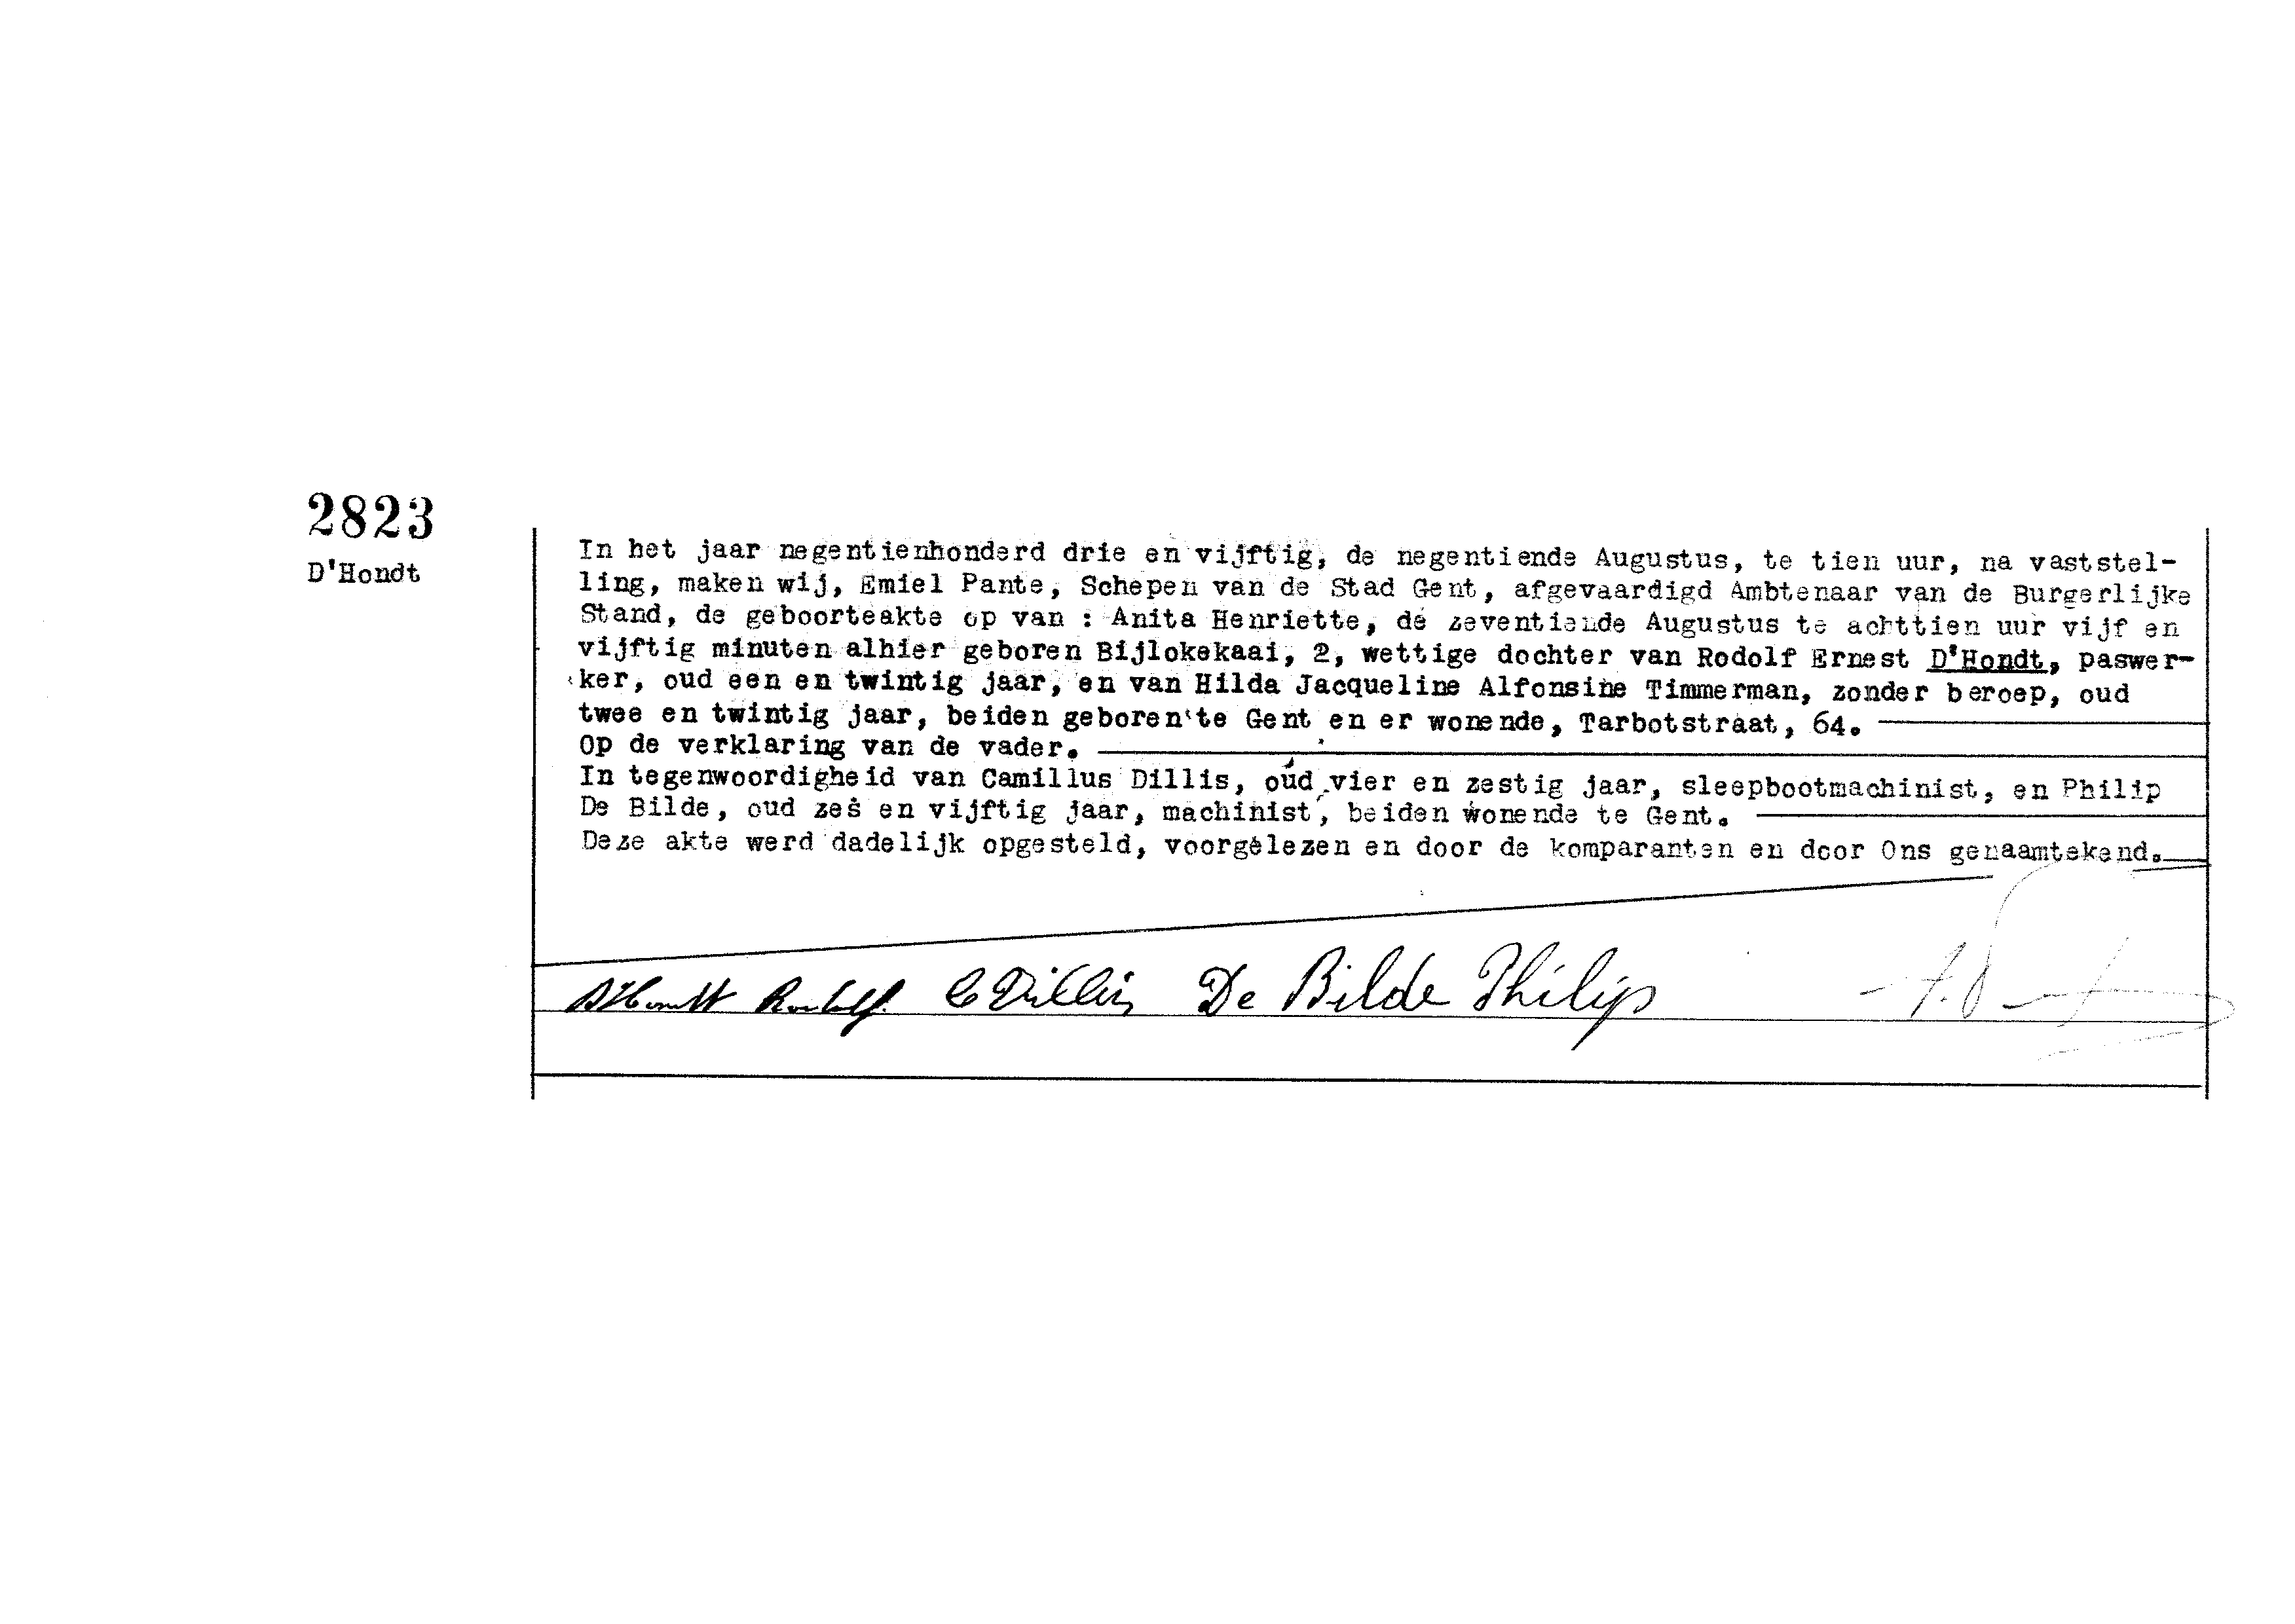 2823
D'Hondt
In het jaar negentienhonderd drie en vijftig, de negentiende Augustus, te tien uur, na vaststel-
ling, maken wij, Emiel Pante, Schepen van de Stad Gent, afgevaardigd Ambtenaar van de Burgerlijke
Stand, de geboorteakte op van : Anita Henriette, de zeventiende Augustus te achttien uur vijf en
vijftig minuten alhier geboren Bijlokekaai, 2, wettige dochter van Rodolf Ernest D'Hondt, paswer-
ker, oud een en twintig jaar, en van Hilda Jacqueline Alfonsine Timmerman, zonder beroep, oud
twee en twintig jaar, beiden geboren te Gent en er wonende, Tarbotstraat, 64.
Op de verklaring van de vader.
In tegenwoordigheid van Camillus Dillis, oud vier en zestig jaar, sleepbootmachinist, en Philip
De Bilde, oud zes en vijftig jaar, machinist, beiden wonende te Gent.
Deze akte werd dadelijk opgesteld, voorgelezen en door de komparanten en door Ons genaamtekend.
D'Hondt Rodolf. C Dillis De Bilde Philip